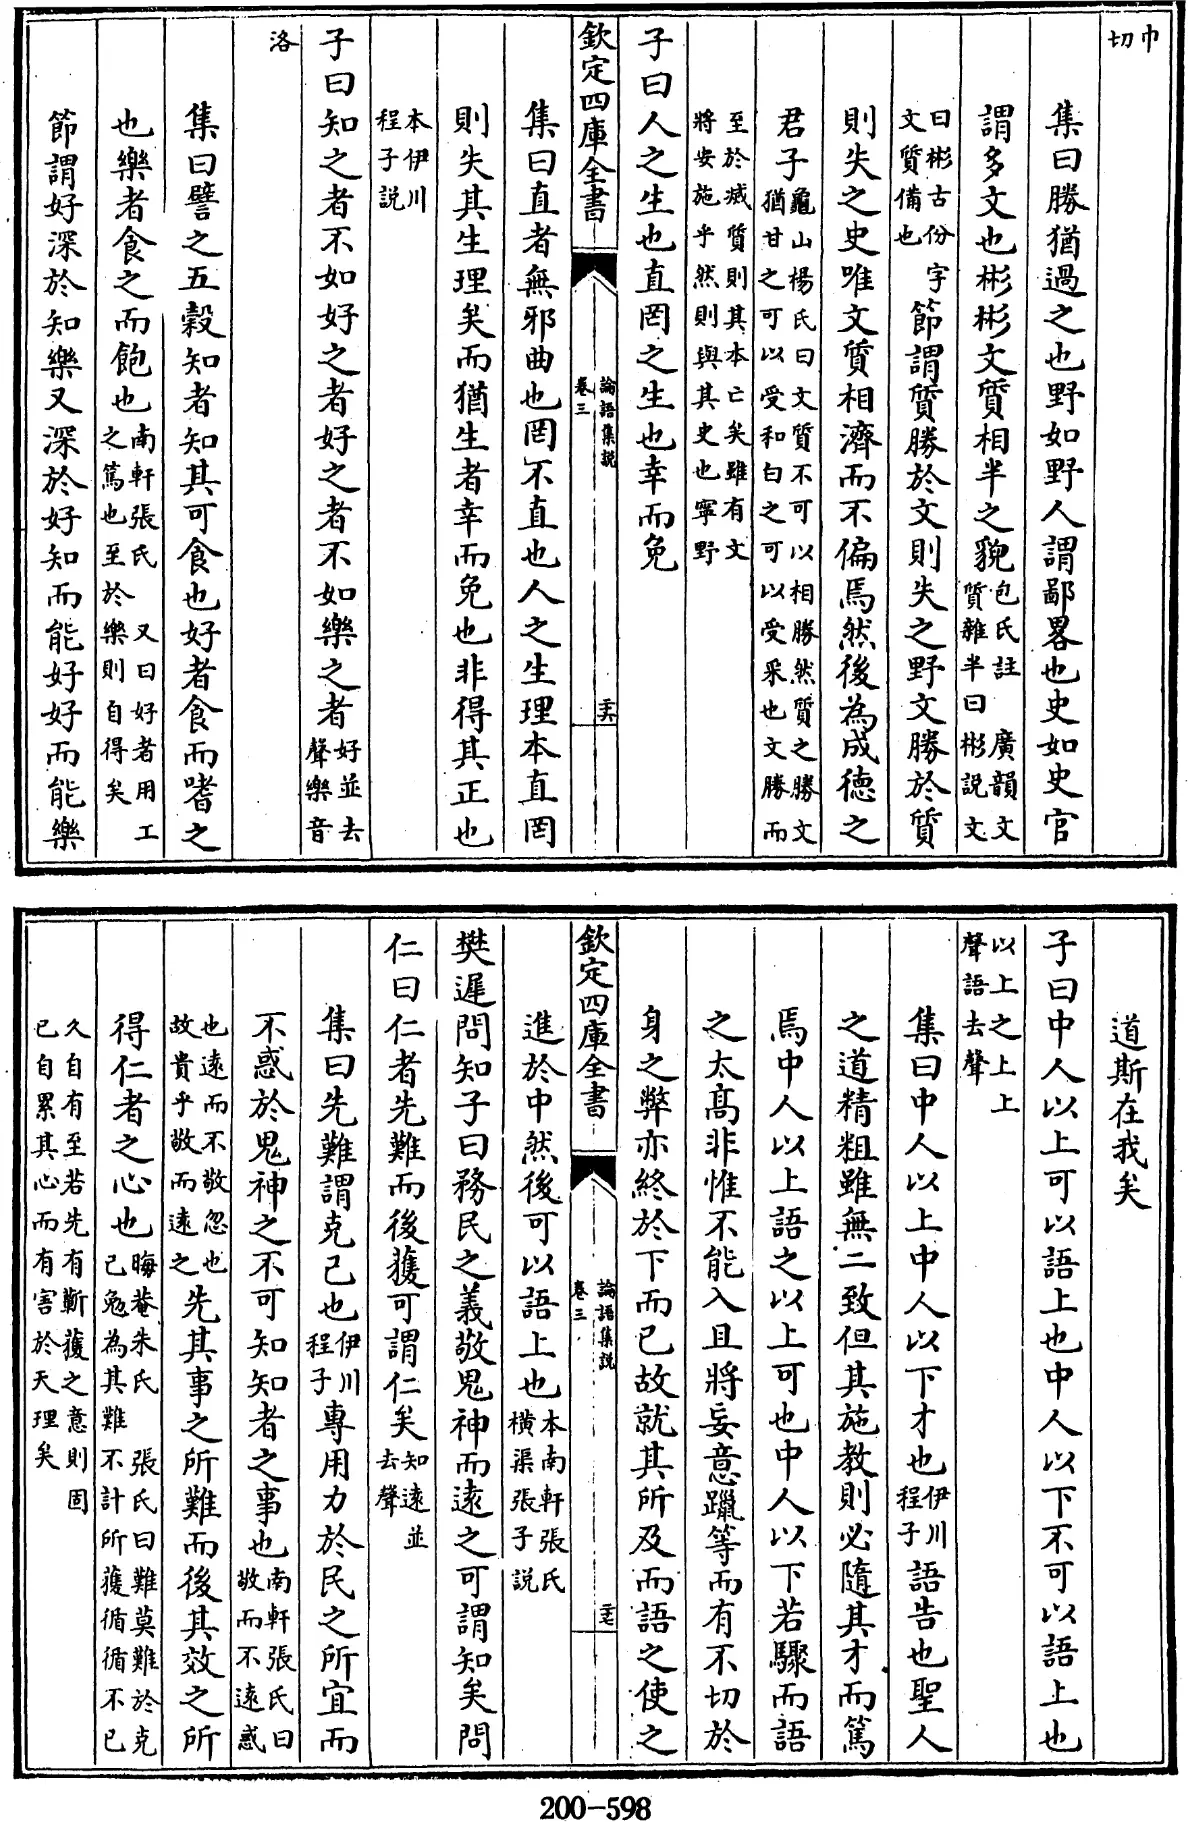 巾切
集曰勝猶過之也野如野人謂鄙畧也史如史官
謂多文也彬彬文質相半之貌包氏註質雜半曰 廣韻文彬説文
曰彬古份字文質備也 節謂質勝於文則失之野文勝於質
則失之史唯文質相濟而不偏焉然後為成德之
君子龜山楊氏曰文質不可以相勝然質之勝文猶甘之可以受和白之可以受采也文勝而
至於滅質則其本亡矣雖有文將安施乎然則與其史也寧野
子曰人之生也直罔之生也幸而免
欽定四庫全書 論語集説 卷三 三十六
集曰直者無邪曲也罔不直也人之生理本直罔
則失其生理矣而猶生者幸而免也非得其正也
本伊川程子説
子曰知之者不如好之者好之者不如樂之者好並去聲樂音
洛
集曰譬之五穀知者知其可食也好者食而嗜之
也樂者食之而飽也南軒張氏 又曰好者用工之篤也至於樂則自得矣
節謂好深於知樂又深於好知而能好好而能樂
道斯在我矣
子曰中人以上可以語上也中人以下不可以語上也
以上之上上聲語去聲
集曰中人以上中人以下才也伊川程子語告也聖人
之道精粗雖無二致但其施教則必隨其才而篤
焉中人以上語之以上可也中人以下若驟而語
之太高非惟不能入且將妄意躐等而有不切於
身之弊亦終於下而已故就其所及而語之使之
欽定四庫全書 論語集説 卷三 三十七
進於中然後可以語上也本南軒張氏横渠張子説
樊遲問知子曰務民之義敬鬼神而遠之可謂知矣問
仁曰仁者先難而後獲可謂仁矣知遠並去聲
集曰先難謂克己也伊川程子專用力於民之所宜而
不惑於鬼神之不可知知者之事也南軒張氏曰敬而不遠惑
也遠而不敬忽也故貴乎敬而遠之先其事之所難而後其效之所
得仁者之心也晦菴朱氏 張氏曰難莫難於克己勉為其難不計所獲循循不已
久自有至若先有蘄獲之意則固已自累其心而有害於天理矣
200-598